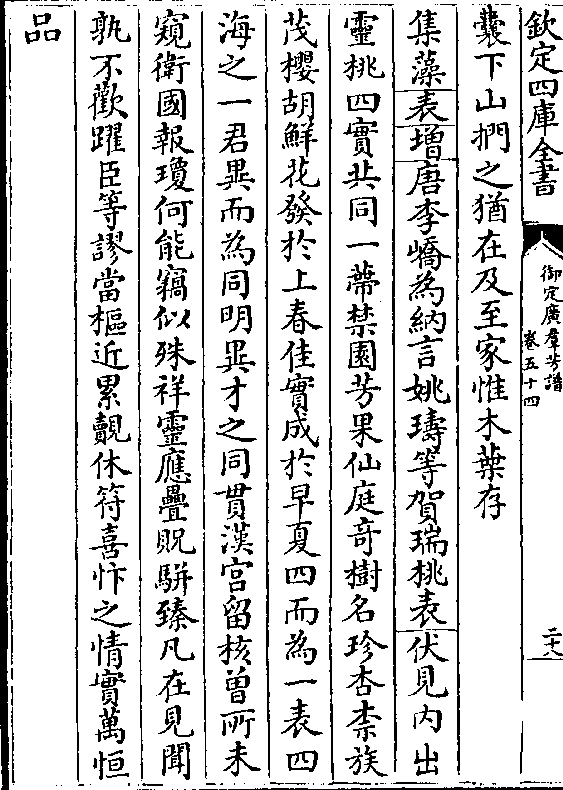 欽定四庫全書
御定廣羣芳譜
卷五十四
二十八
囊下山捫之猶在及至家惟木葉存
集藻表增唐李嶠為納言姚璹等賀瑞桃表伏見内出
靈桃四實共同一蔕禁園芳果仙庭竒樹名珍杏柰族
茂櫻胡鮮花發於上春佳實成於早夏四而為一表四
海之一君異而為同明異才之同貫漢宫留核曽所未
窺衛國報瓊何能竊似殊祥靈應疊貺駢臻凡在見聞
孰不歡躍臣等謬當樞近累覿休符喜忭之情實萬恒
品